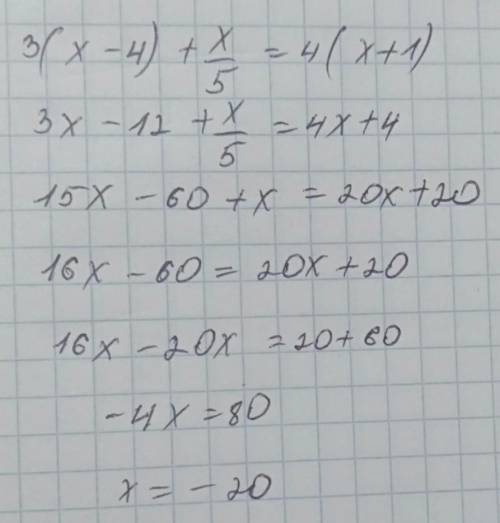 3(x-4) + x/5 = 4(x+1)
3x - 12 + x/5 = 4x+4
15x - 60 + x = 20x+20
16x - 60 = 20x + 20
16x - 20x = 20+60
-4x = 80
x = -20